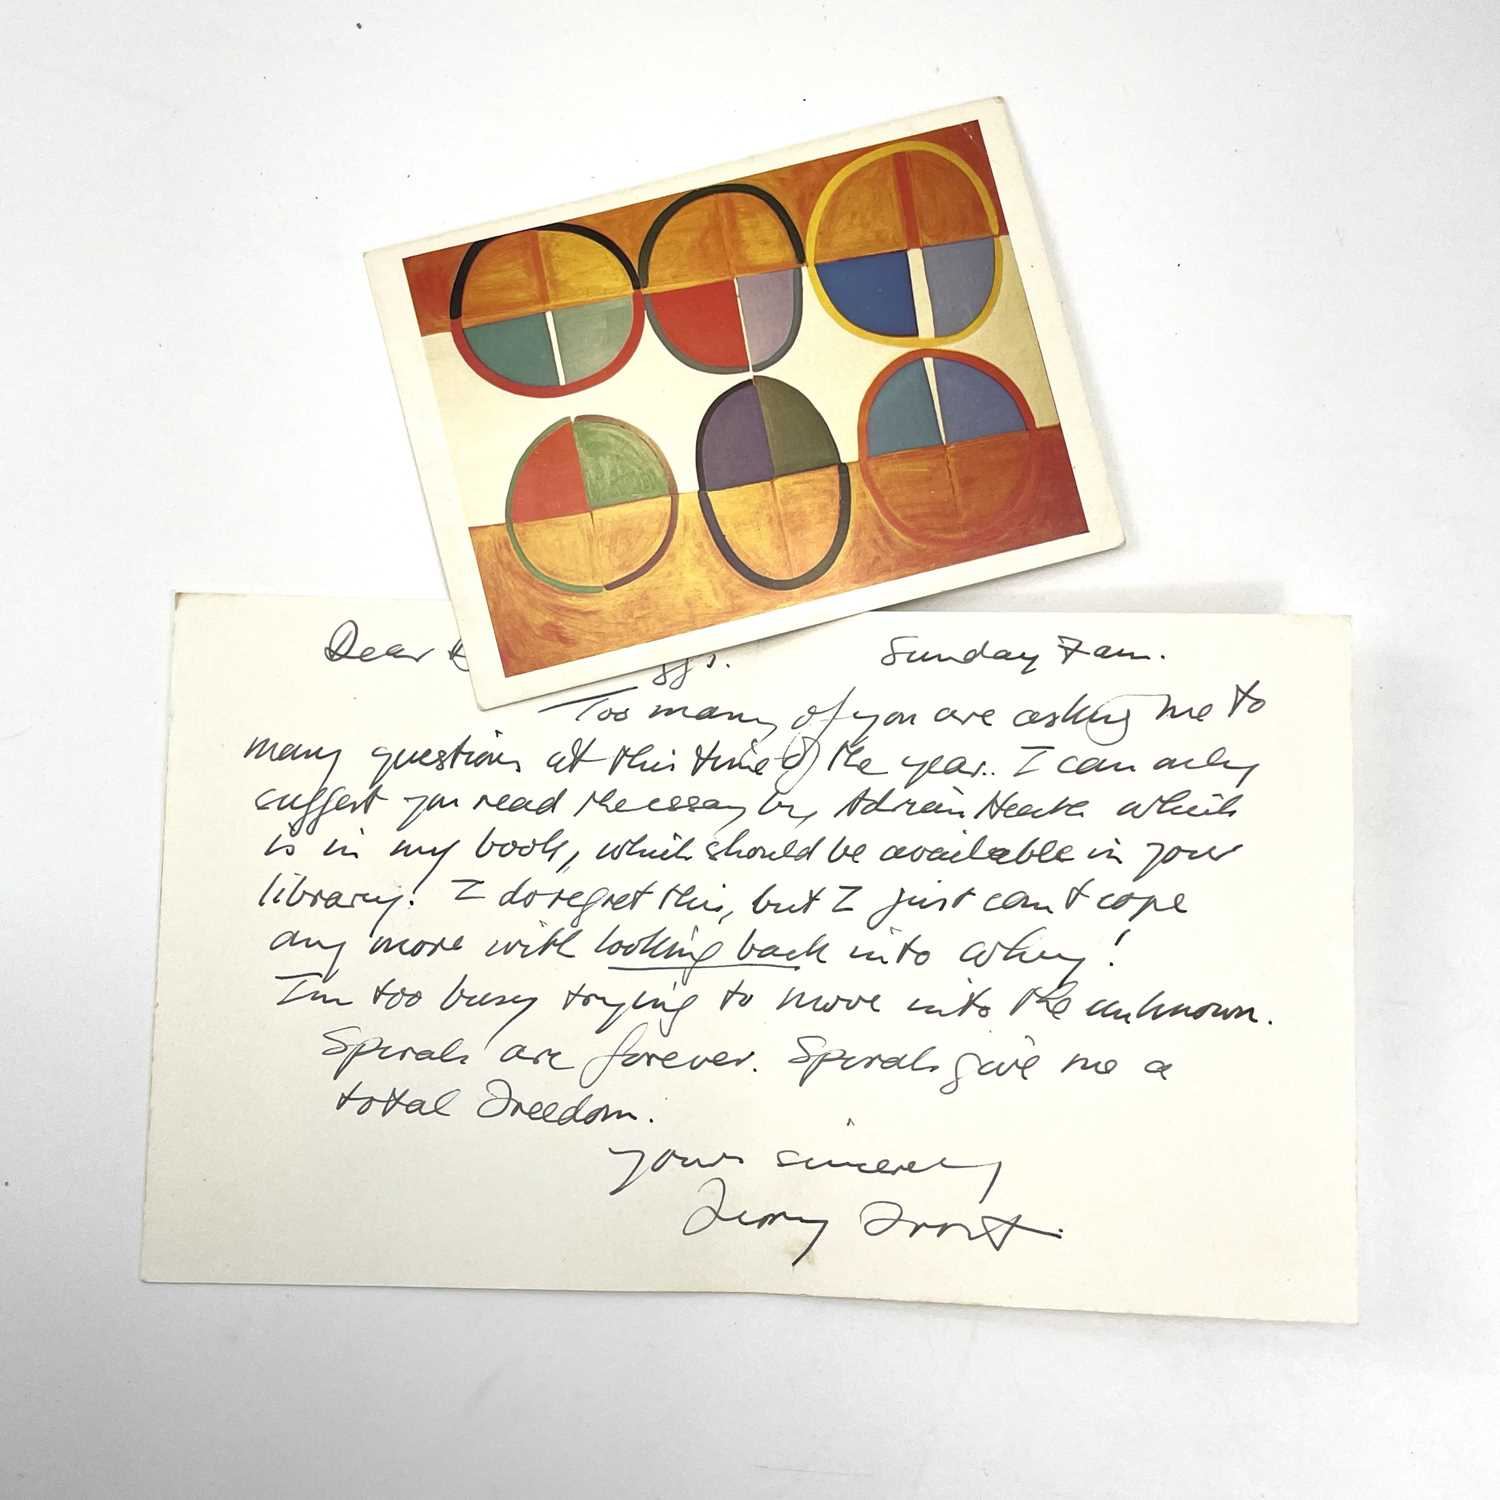 Dear Sunday 7am.
Too many of you are asking me to
many questions at this time of the year.. I can only
suggest you read the essay by Adrian Heath which
is in my book, which should be available in your
library! I do regret this, but I just can't cope
any more with looking back into why!
I'm too busy trying to move into the unknown.
Spirals are forever. Spirals give me a
total Freedom.
yours sincerely
Terry Frost.